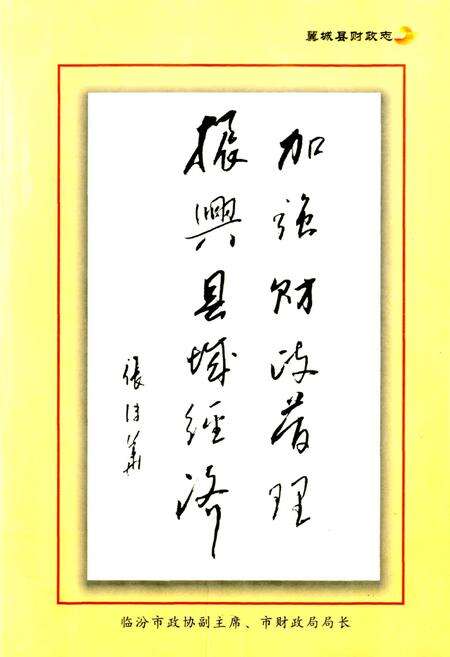 翼城县财政志
加強财政管理
振興县域经济
临汾市政协副主席、市财政局局长